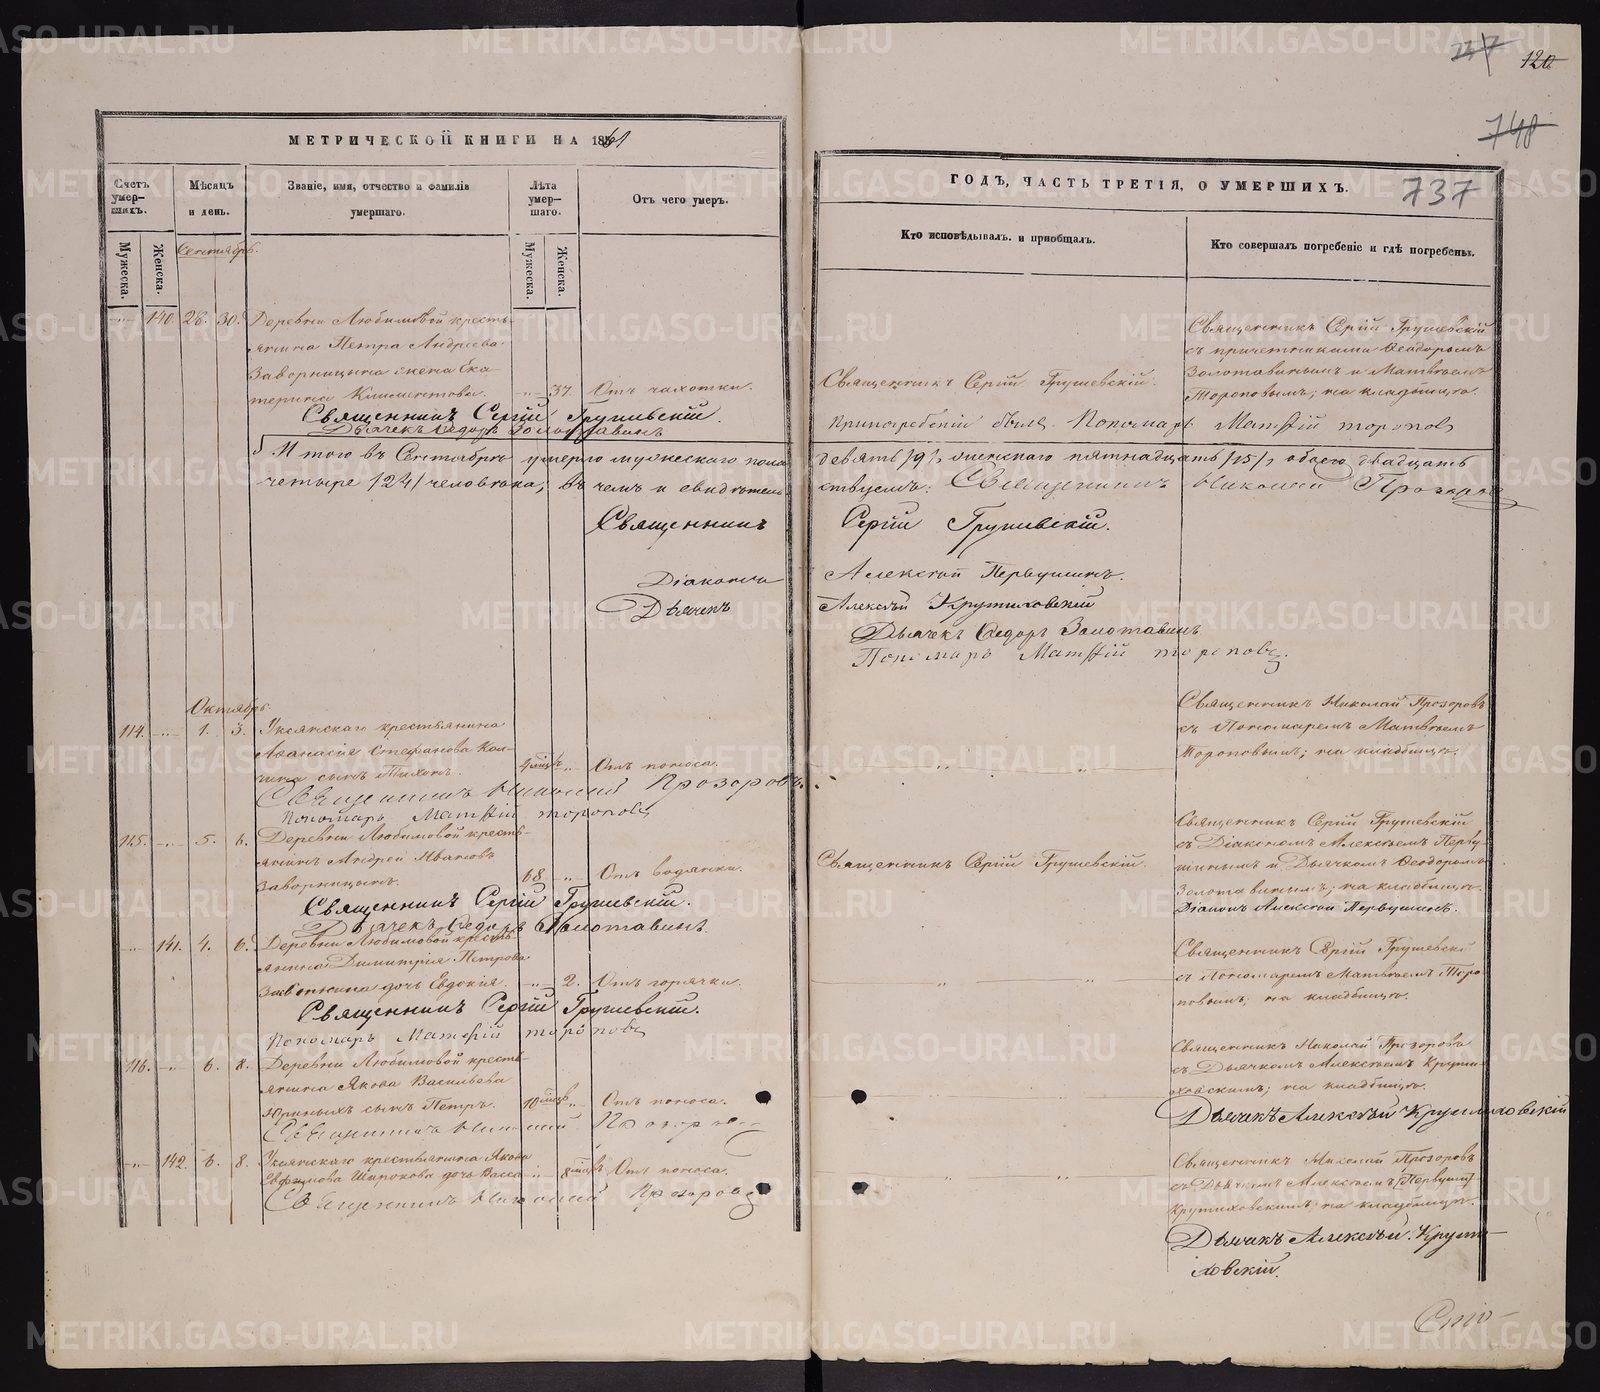 МЕТРИЧЕСКОЙ КНИГИ НА 1861
Счетъ умер-шихъ.
Мѣсяцъ и день.
Званіе, имя, отчество и фамилія умершаго.
Лѣта умер-шаго.
Отъ чего умеръ.
Мужеска.
Женска.
Мужеска.
Женска.
Сентябрь.
140. 28. 30. Деревни Любимовой кресть-
янина Петра Андреева
Заворницына жена Ека-
терина Климентова. 37. Отъ чахотки.
Священникъ Сергій Грушевскій.
Дьячекъ Ѳедоръ Золотавинъ
Итого въ Сентябрѣ умерло мужескаго пола
четыре /24/ человѣка; въ чемъ и свидѣтель-
Священникъ
Діаконъ
Дьячекъ
Октябрь.
114. 1. 3. Уксянскаго крестьянина
Аѳанасія Стефанова
сынъ Тихонъ. Отъ поноса.
Священникъ Николай Прозоровъ.
Пономарь Матѳій Тороповъ
115. 5. 6. Деревни Любимовой кресть-
янинъ Андрей Ивановъ
Заворницынъ. 68. Отъ водянки.
Священникъ Сергій Грушевскій.
Дьячекъ Ѳедоръ Золотавинъ.
141. 4. 6. Деревни Любимовой кресть-
янина Димитрія Петрова
дочь Евдокія. 2. Отъ горячки.
Священникъ Сергій Грушевскій.
Пономарь Матѳій Тороповъ
116. 6. 8. Деревни Любимовой кресть-
янина Якова Васильева
сынъ Петръ. 10 Отъ поноса.
Священникъ Николай Прозоровъ
142. 6. 8. Уксянскаго крестьянина Якова
Евфимова Широкова дочь Васса 8 Отъ поноса.
Священникъ Николай Прозоровъ
120
748
ГОДЪ, ЧАСТЬ ТРЕТІЯ, О УМЕРШИХЪ.
737
Кто исповѣдывалъ и пріобщалъ.
Кто совершалъ погребеніе и гдѣ погребены.
Священникъ Сергій Грушевскій
съ причетниками Ѳеодоромъ
Золотавинымъ и Матвѣемъ
Тороповымъ; на кладбищѣ.
Священникъ Сергій Грушевскій.
При погребеніи былъ Пономарь Матѳій Тороповъ
девять /9/, женскаго пятнадцать /15/, обоего двадцать
ствуемъ: Священникъ Николай Прозоровъ
Сергій Грушевскій.
Алексѣй Первушинъ.
Алексѣй Крутиховскій
Дьячекъ Ѳедоръ Золотавинъ
Пономарь Матѳій Тороповъ.
Священникъ Николай Прозоровъ
съ Пономаремъ Матвѣемъ
Тороповымъ; на кладбищѣ.
Священникъ Сергій Грушевскій.
Священникъ Сергій Грушевскій
съ Діакономъ Алексѣемъ Перву-
шинымъ и Дьячкомъ Ѳеодоромъ
Золотавинымъ; на кладбищѣ.
Діаконъ Алексѣй Первушинъ.
Священникъ Сергій Грушевскій
съ Пономаремъ Матвѣемъ Торо-
повымъ; на кладбищѣ.
Священникъ Николай Прозоровъ
съ Дьячкомъ Алексѣемъ Крути-
ховскимъ; на кладбищѣ.
Дьячекъ Алексѣй Крутиховскій
Священникъ Николай Прозоровъ
съ Дьячкомъ Алексѣемъ
Крутиховскимъ; на кладбищѣ.
Дьячекъ Алексѣй Крути-
ховскій.
METRIKI.GASO-URAL.RU